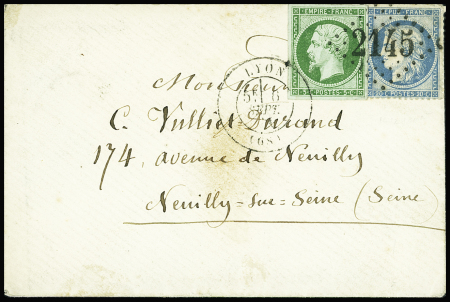 EMPIRE FRANC
5 C POSTES 5 C
2145
LYON
6
SEPT.
(68)
Monsieur
C. Vulliet Durand
174, avenue de Neuilly
Neuilly-sur-Seine (Seine)